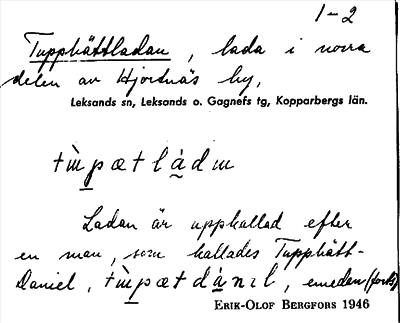 1-2
Tupphättladan, lada i norra
delen av Hjortnäs by,
Leksands sn, Leksands o. Gagnefs tg, Kopparbergs län.
Ladan är uppkallad efter
en man, som kallades Tupphätt-
Daniel, emedan (forts)
ERIK-OLOF BERGFORS 1946